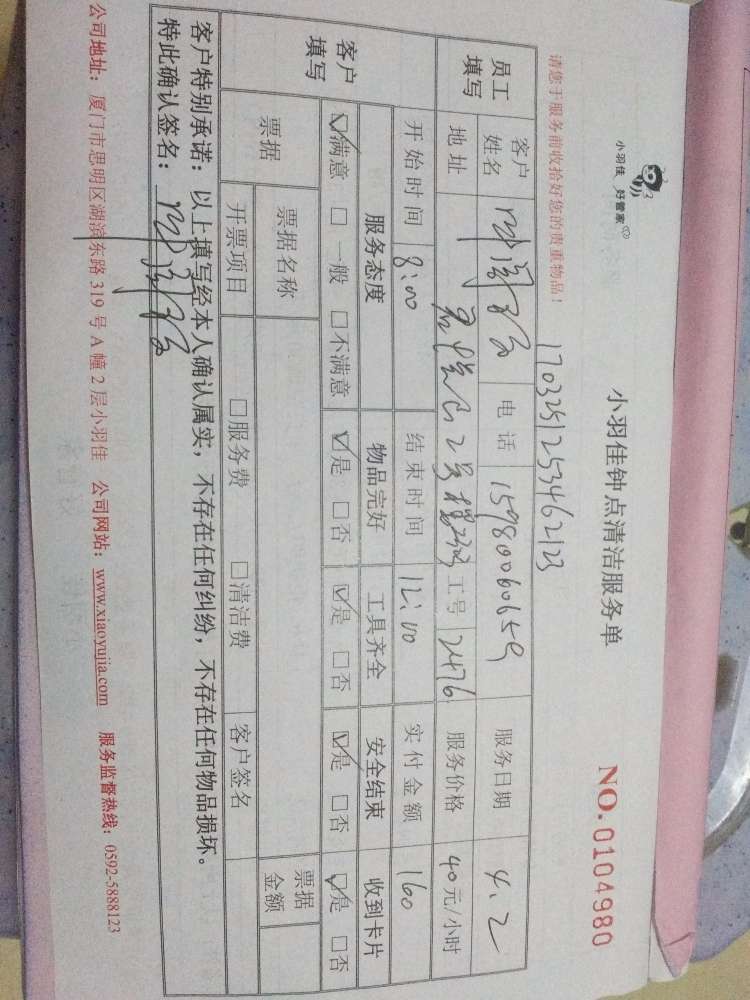 小羽佳 好管家
小羽佳钟点清洁服务单
NO.0104980
请您于服务前收拾好您的贵重物品！
1703251253462123
员工填写
客户姓名
电话 15980060659
服务日期 4.2
地址
2号楼
工号 2476
服务价格 40元/小时
开始时间 8:00
结束时间 12:00
实付金额 160
客户填写
服务态度 物品完好 工具齐全 安全结束 收到卡片
☑满意 □一般 □不满意 ☑是 □否 ☑是 □否 ☑是 □否 ☑是 □否
票据 票据名称 票据金额
开票项目 □服务费 □清洁费 客户签名
客户特别承诺：以上填写经本人确认属实，不存在任何纠纷，不存在任何物品损坏。
特此确认签名：
公司地址：厦门市思明区湖滨东路 319 号 A 幢 2 层小羽佳 公司网站：www.xiaoyujia.com 服务监督热线：0592-5888123